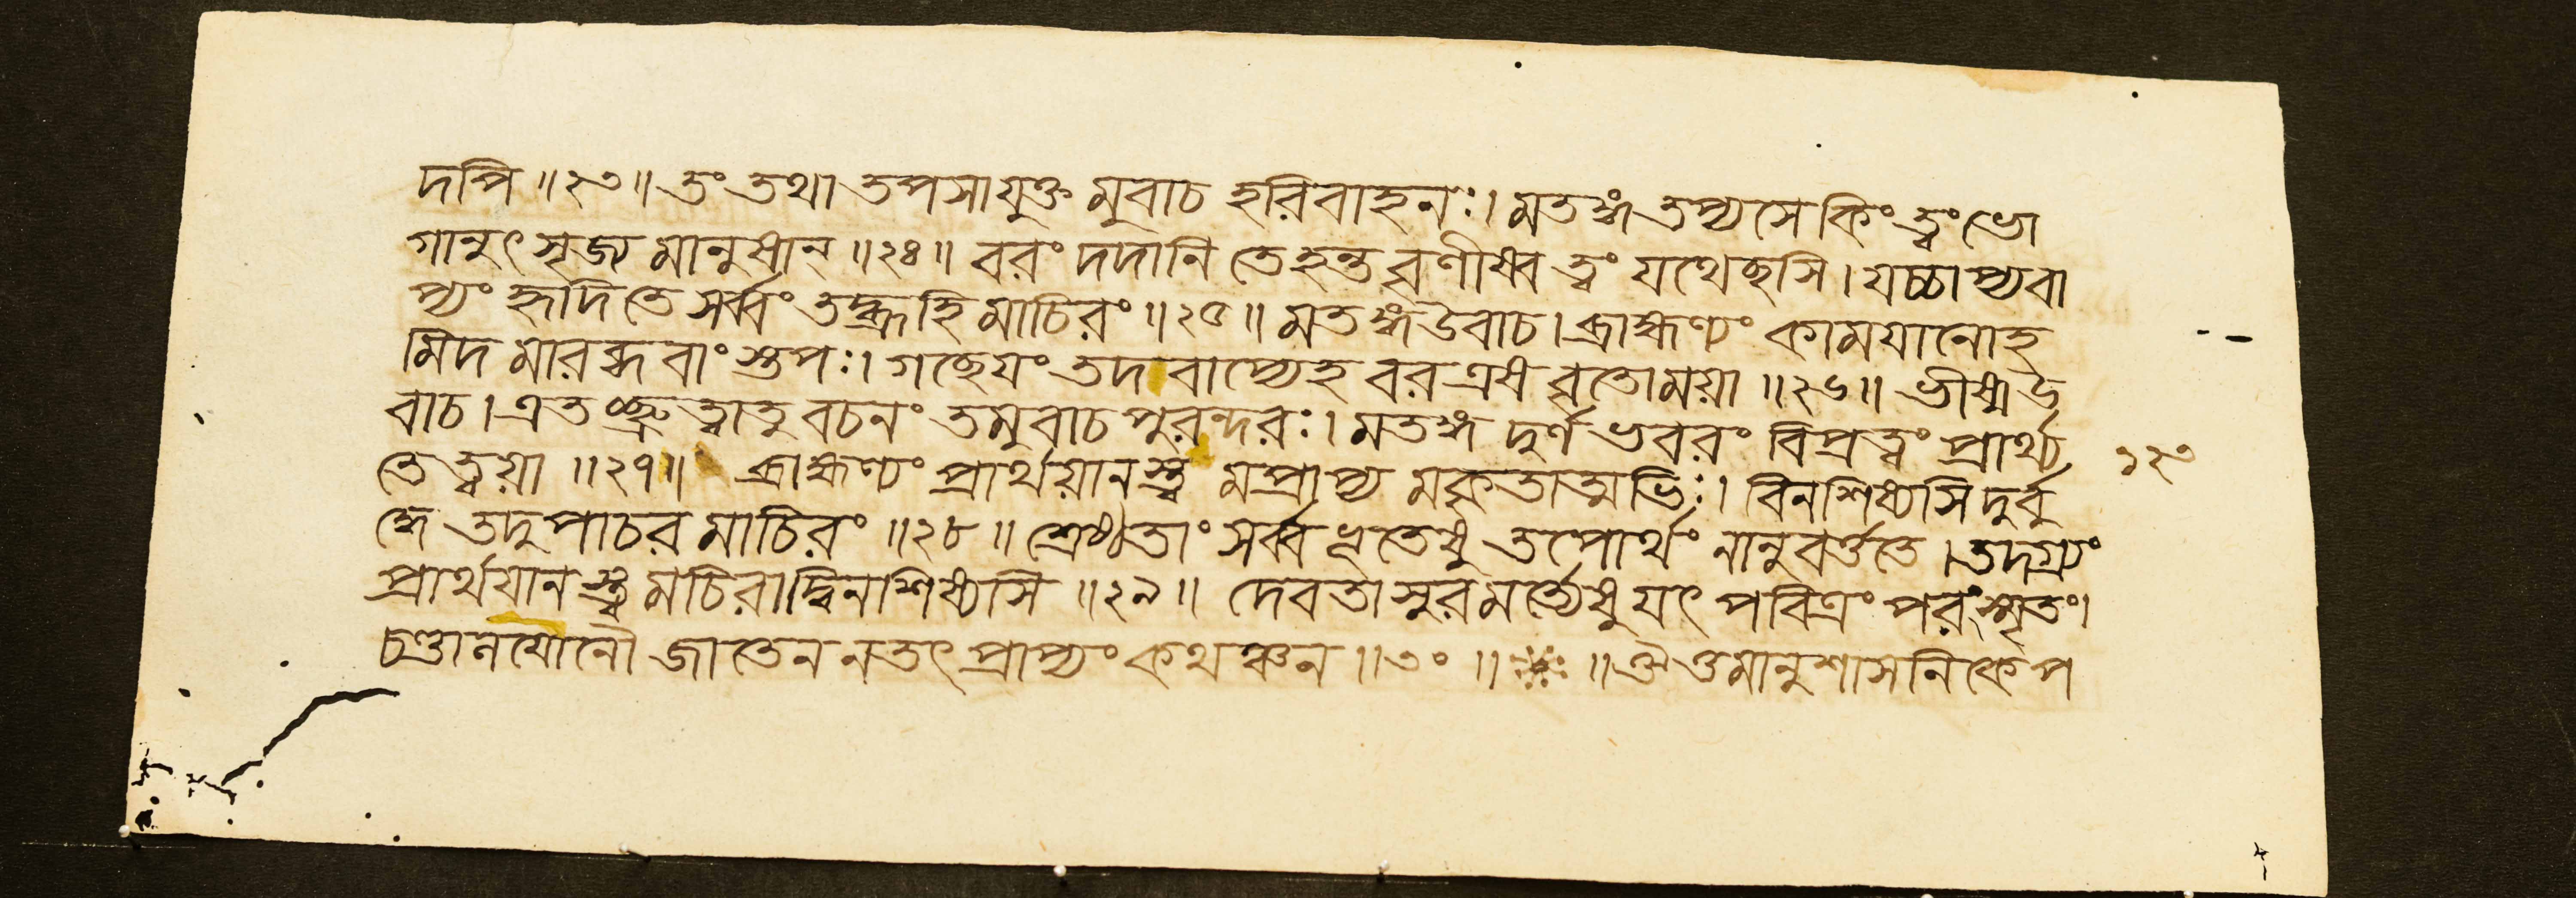 দপি ॥২৩॥ তং তথা তপসাযুক্ত মুবাচ হরিবাহনঃ। মতঙ্গ তপ্যসে কিং ত্বং ভো
গানুৎসৃজ্য মানুষান্ ॥২৪॥ বরং দদানি তে হন্ত বৃণীষ্ব ত্বং যথেচ্ছসি। যচ্চাপ্যবা
প্যং হৃদি তে সর্ব্বং তদ্ব্রূহি মাচিরং ॥২৫॥ মতঙ্গ উবাচ। ব্রাহ্মণ্যং কাময়ানোহ
মিদ মারব্ধবাংস্তপঃ। গচ্ছেয়ং তদবাপ্যেহ বর এষ বৃতোময়া ॥২৬॥ ভীষ্ম উ
বাচ। এতচ্ছ্রুত্বাতু বচনং তমুবাচ পুরন্দরঃ। মতঙ্গ দুর্ণভবরং বিপ্রত্বং প্রার্থ্য
তে ত্বয়া ॥২৭॥ ব্রাহ্মণ্যং প্রার্থয়ানস্ত্ব মপ্রাপ্য মকৃতাত্মভিঃ। বিনশিষ্যসি দুর্বু
দ্ধে তদুপাচর মাচিরং ॥২৮॥ শ্রেষ্ঠতাং সর্ব্বভূতেষু তপোর্থং নানুবর্ত্ততে। তদগ্র্যং
প্রার্থয়ানস্ত্ব মচিরাদ্বিনশিষ্যসি ॥২৯॥ দেবতাসুরমর্ত্ত্যেষু যৎ পবিত্রং পরং স্মৃতং।
চণ্ডানযোনৌ জাতেন নতৎ প্রাপ্যং কথঞ্চন ॥৩০॥ ॥ঐত্তমানুশাসনিকেপ
১২৩